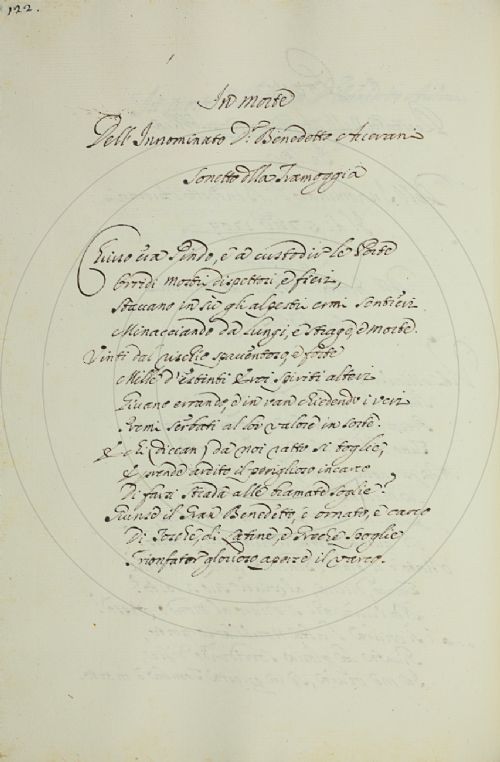 122.
In morte
Dell' Innominato D.r Benedetto Averani
Sonetto della Tramoggia
Chiuso era Pindo, e a custodir le Porte
Orridi mostri dispettosi, e fieri,
Stavano in su gli alpestri ermi sentieri
Minacciando da lungi, e strage, e morte.
Vinti dal rischio spaventoso, e forte
Mille d'estinti Eroi spiriti alteri
Givano errando, e in van chiedendo i veri
Premi serbati al lor valore in sorte.
E chi (diccan) da noi ratto si toglie,
E prende ardito il periglioso incarco
Di farsi strada alle bramate soglie?
Giunse il Gran Benedetto, e ornato, e carco
Di Tosche, di Latine, e Greche spoglie
Trionfator glorioso aperse il varco.